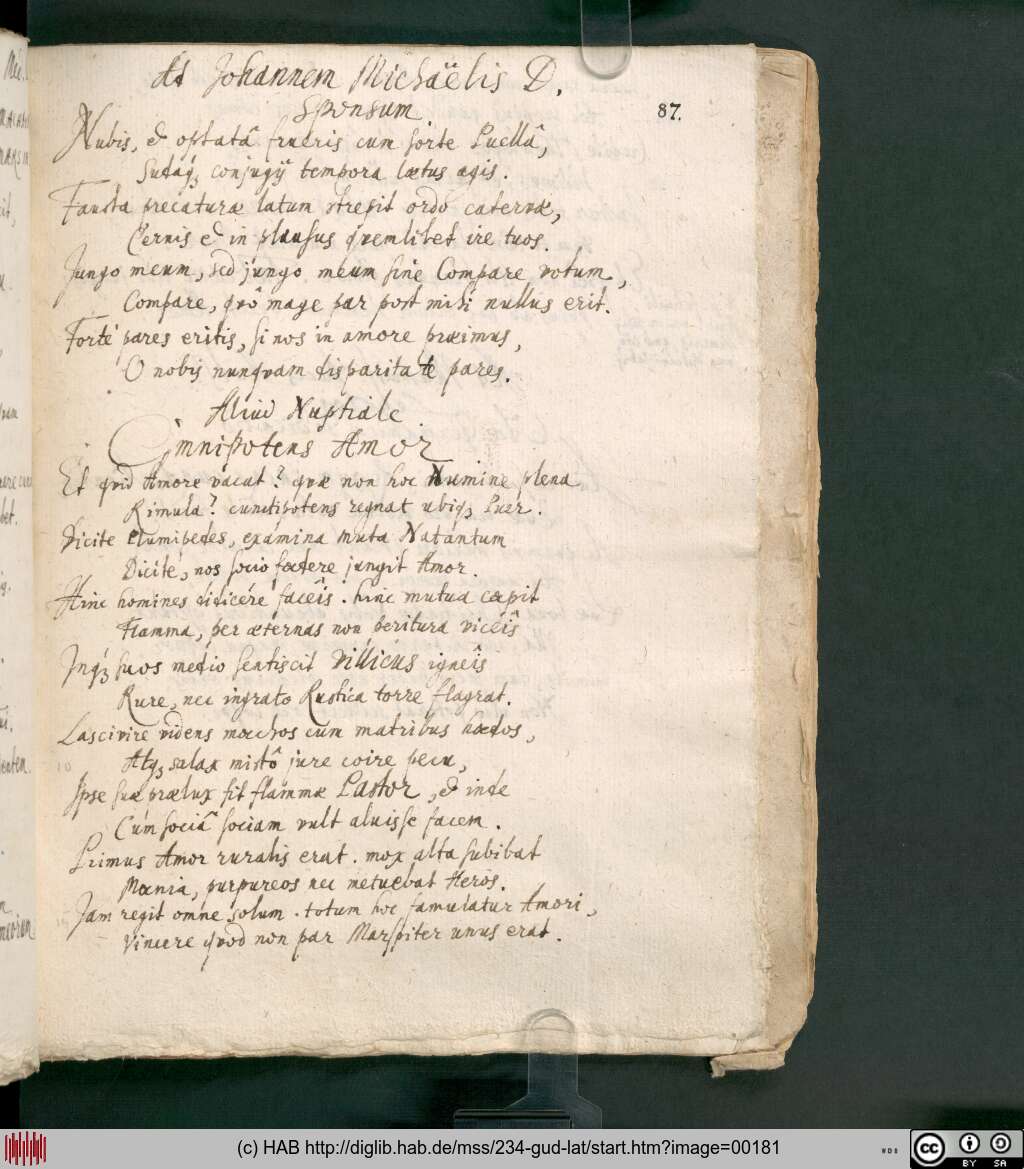 Ad Johannem Michaëlis D.
Sponsum.
87.
Nubis, & optatâ frueris cum sorte Puellâ,
Sudaq; conjugij tempora lætus agis.
Fausta precaturæ latum strepit ordo catervæ,
Cernis & in plausus qvemlibet ire tuos.
Jungo meum, sed jungo meum sine Compare votum,
Compare, qvô mage par post mihi nullus erit.
Forté pares eritis, si nos in amore præimus,
O nobis nunqvam disparitate pares.
Aliud Nuptiale
Omnipotens Amor
Et qvid Amore vacat? qvæ non hoc Numine plena
Rimula? cunctipotens regnat ubiq; Puer.
Dicite Plumipedes, examina muta Natantum
Dicite, nos socio foedere jungit Amor.
Hinc homines didicére faceis. hinc mutua cæpit
Flamma, per æternas non peritura viceis
Inq; suos medio sentiscit Villicus igneis
Rure, nec ingrato Rustica torre flagrat.
Lascivire videns moechos cum matribus hoedos,
Atq; salax mistô jure coire pecu,
Ipse suæ prælux fit flammæ Pastor, & inde
Cùm sociâ sociam vult aluisse facem.
Primus Amor ruralis erat. mox alta subibat
Moenia, purpureos nec metuebat Heros.
Jam regit omne solum. totum hoc famulatur Amori,
Vincere qvod non par Marspiter unus erat.
(c) HAB http://diglib.hab.de/mss/234-gud-lat/start.htm?image=00181
cc BY SA